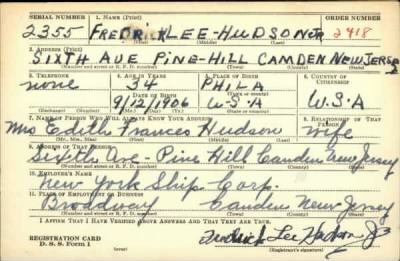 SERIAL NUMBER 1. NAME (Print) ORDER NUMBER
2355 FREDRICK LEE-HUDSON JR 2418
(First) (Middle) (Last)
2. ADDRESS (Print)
SIXTH AVE PINE-HILL CAMDEN NEW JERSEY
(Number and street or R. F. D. number) (Town) (County) (State)
3. TELEPHONE 4. AGE IN YEARS 5. PLACE OF BIRTH 6. COUNTRY OF CITIZENSHIP
none 34 PHILA
DATE OF BIRTH (Town or county)
9/12/1906 U.S.A U.S.A.
(Exchange) (Number) (Mo.) (Day) (Yr.) (State or country)
7. NAME OF PERSON WHO WILL ALWAYS KNOW YOUR ADDRESS 8. RELATIONSHIP OF THAT PERSON
Mrs Edith Frances Hudson wife
(Mr., Mrs., Miss) (First) (Middle) (Last)
9. ADDRESS OF THAT PERSON
Sixth Ave - Pine Hill Camden New Jersey
(Number and street or R. F. D. number) (Town) (County) (State)
10. EMPLOYER'S NAME
New York Ship Corp.
11. PLACE OF EMPLOYMENT OR BUSINESS
Broadway Camden New Jersey
(Number and street or R. F. D. number) (Town) (County) (State)
I AFFIRM THAT I HAVE VERIFIED ABOVE ANSWERS AND THAT THEY ARE TRUE.
REGISTRATION CARD
D. S. S. Form 1 (over) Fredrick Lee Hudson Jr
(Registrant's signature)